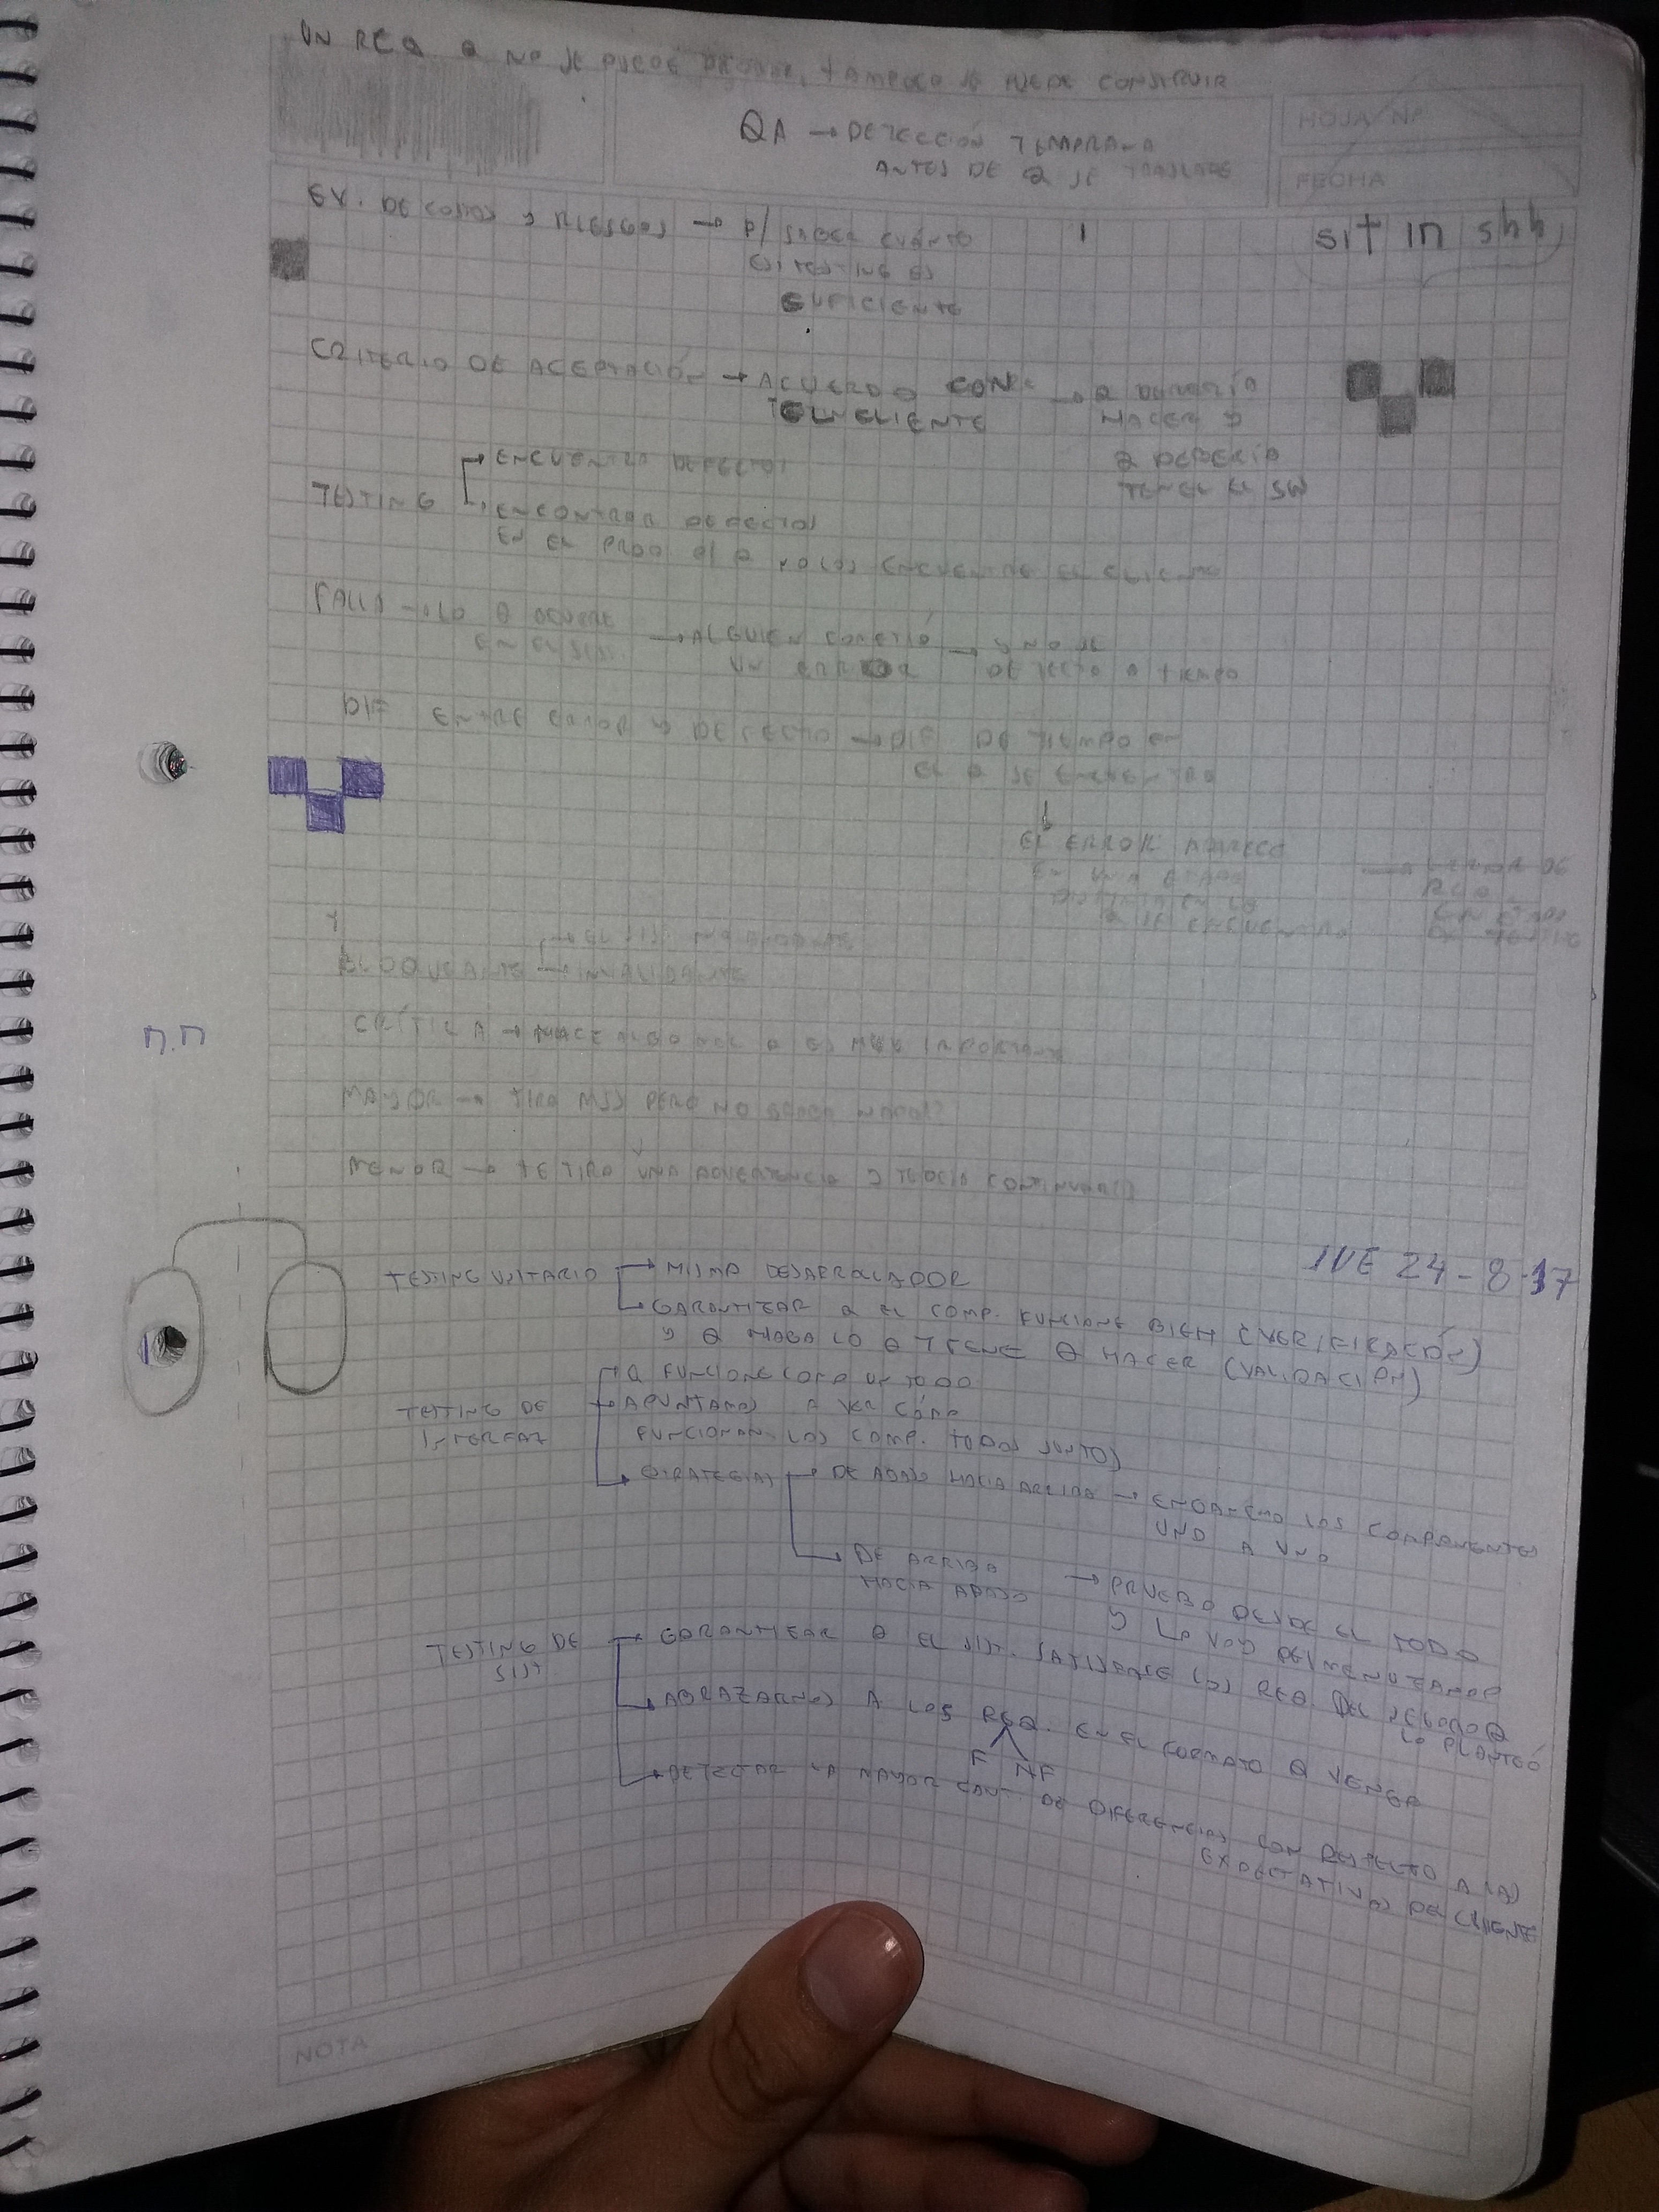 UN REQ Q NO SE PUEDE PROBAR, TAMPOCO SE PUEDE CONSTRUIR
QA → DETECCIÓN TEMPRANA
ANTES DE Q SE TRASLADE
HOJA Nº
FECHA
EV. DE COSTOS Y RIESGOS → P/ SABER CUÁNTO
TESTING ES
SUFICIENTE
sit in shh
CRITERIO DE ACEPTACIÓN → ACUERDO CON
EL CLIENTE
→ Q DEBERÍA
HACER Y
Q DEBERÍA
TENER EL SW
TESTING
→ ENCUENTRA DEFECTOS
→ ENCONTRAR DEFECTOS
EN EL PROD P/ Q NO LOS ENCUENTRE EL CLIENTE
FALLA → LO Q OCURRE
EN EL SIST.
→ ALGUIEN COMETIÓ
UN ERROR
→ Y NO SE
DETECTÓ A TIEMPO
DIF ENTRE ERROR Y DEFECTO → DIF. DE TIEMPO EN
EL Q SE ENCUENTRA
↓
EL ERROR APARECE
EN UNA ETAPA
DISTINTA EN LA
Q SE ENCUENTRA
→ ERROR DE
REQ
EN ETAPA
DE TESTING
BLOQUEANTE → INVALIDANTE
CRÍTICA → HACE ALGO MAL Q ES MUY IMPORTANTE
MAYOR → TIRA MSJ PERO NO
MENOR → TE TIRA UNA ADVERTENCIA Y TE DEJA CONTINUAR
n.n
JUE 24-8-17
TESTING UNITARIO
→ MISMO DESARROLLADOR
→ GARANTIZAR Q EL COMP. FUNCIONE BIEN (VERIFICACIÓN)
Y Q HAGA LO Q TIENE Q HACER (VALIDACIÓN)
TESTING DE
INTERFAZ
→ Q FUNCIONE COMO UN TODO
→ APUNTAMOS A VER CÓMO
FUNCIONAN LOS COMP. TODOS JUNTOS
→ ESTRATEGIAS → DE ABAJO HACIA ARRIBA → ENGANCHO LOS COMPONENTES
UNO A UNO
→ DE ARRIBA
HACIA ABAJO
→ PRUEBO DESDE EL TODO
Y LO VOY DESMENUZANDO
TESTING DE
SIST
→ GARANTIZAR Q EL SIST. SATISFACE LOS REQ. DEL NEGOCIO Q
LO PLANTEÓ
→ ABRAZARNOS A LOS REQ. EN EL FORMATO Q VENGA
F NF
→ DETECTAR LA MAYOR CANT. DE DIFERENCIAS CON RESPECTO A LAS
EXPECTATIVAS DEL CLIENTE
NOTA